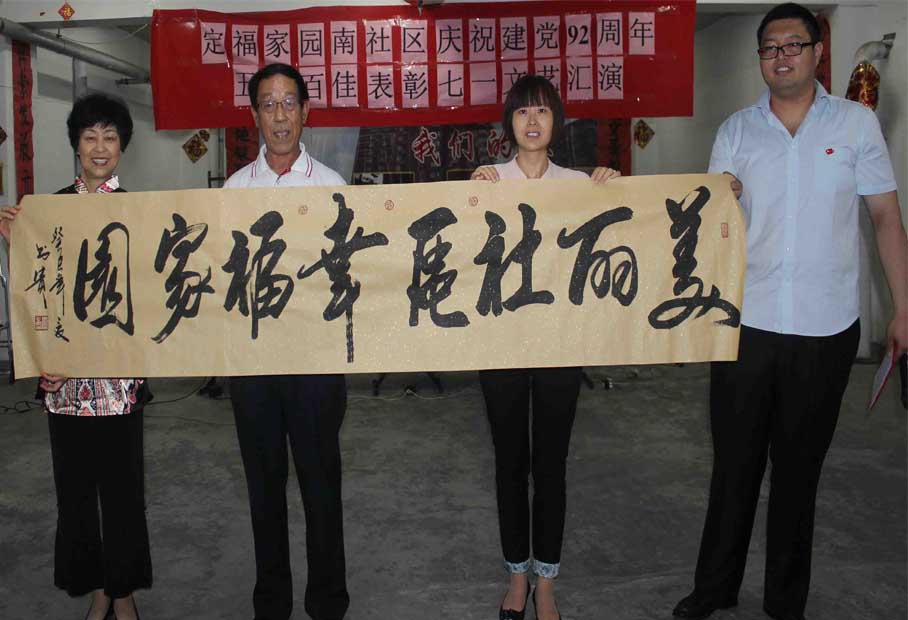 定福家园南社区庆祝建党92周年
五 百佳表彰七一文艺汇演
我们的
美丽社區幸福家園
癸巳年夏